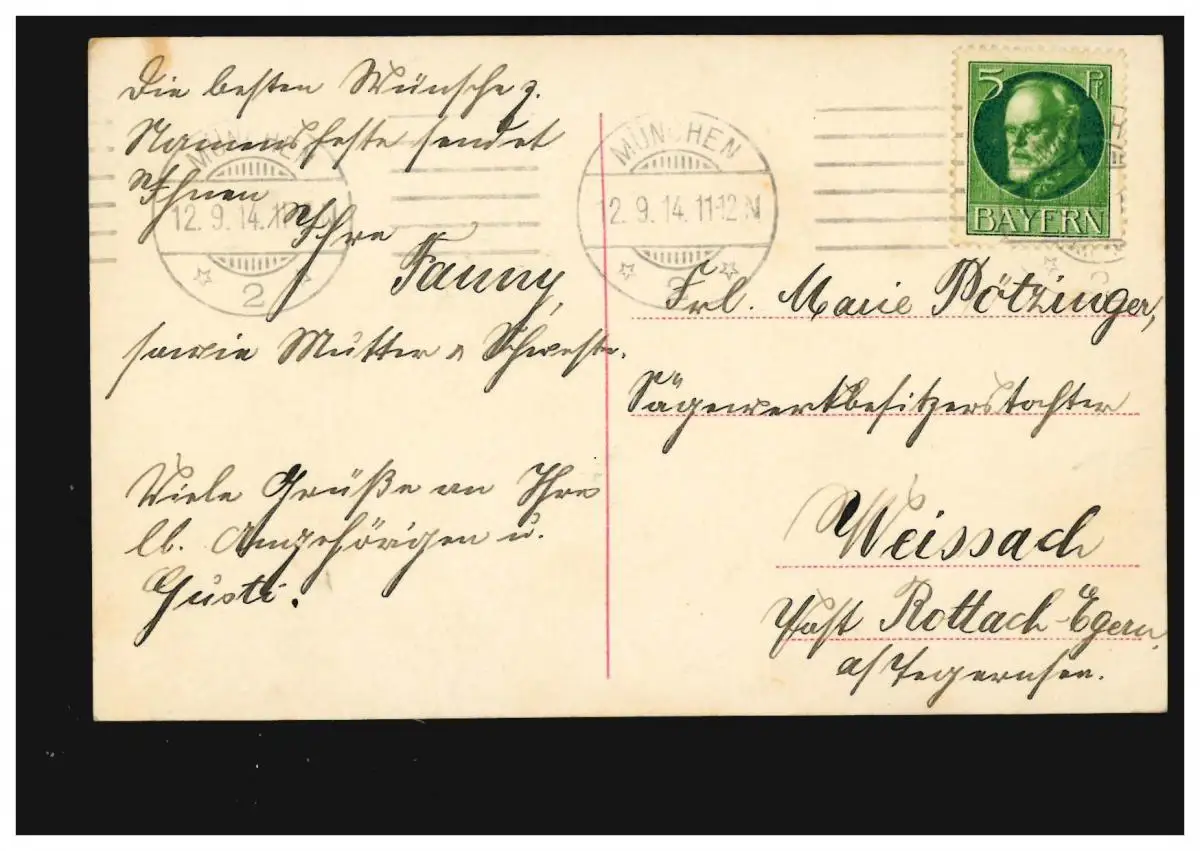 Die besten Wünsche z.
Namensfeste sendet
Ihnen Ihre
Fanny,
sowie Mutter u Schwester.
Viele Grüße an Ihre
lb. Angehörigen u.
Gusti.
MÜNCHEN
12.9.14.11-12 N
2
MÜNCHEN
12.9.14.11-12 N
2
5 Pf
BAYERN
Frl. Marie Pötzinger,
Sägewerkbesitzerstochter
Weissach
Post Rottach-Egern
a/Tegernsee.